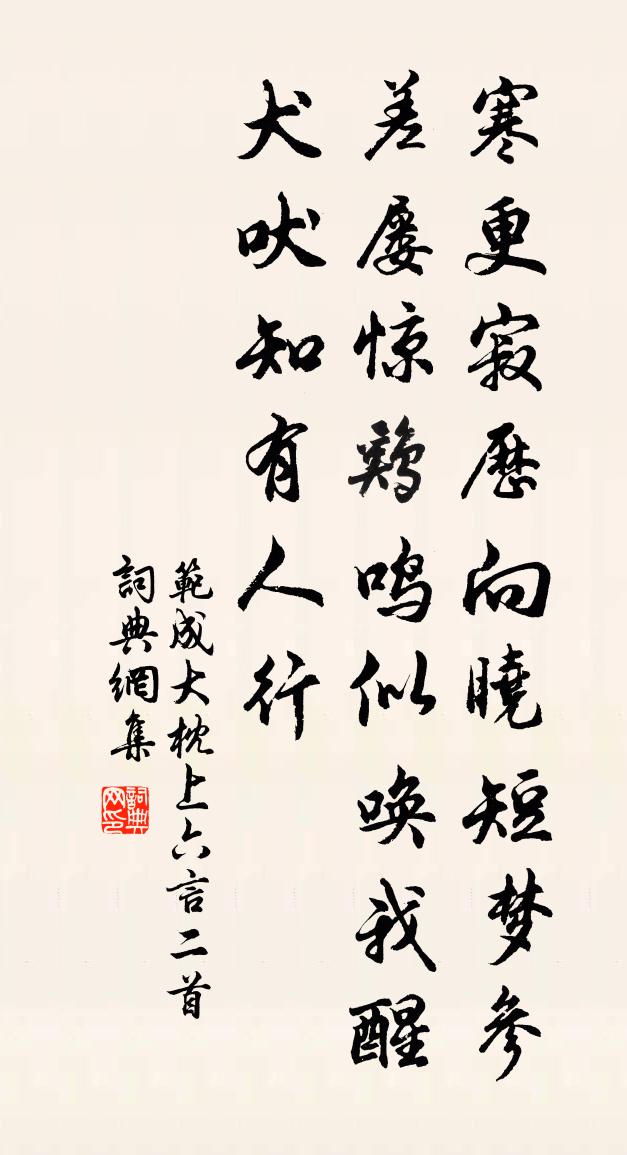 寒更寂歷向曉短梦參
差屡惊鷄鸣似唤我醒
犬吠知有人行
範成大枕上六言二首
詞典網集
詞典网印